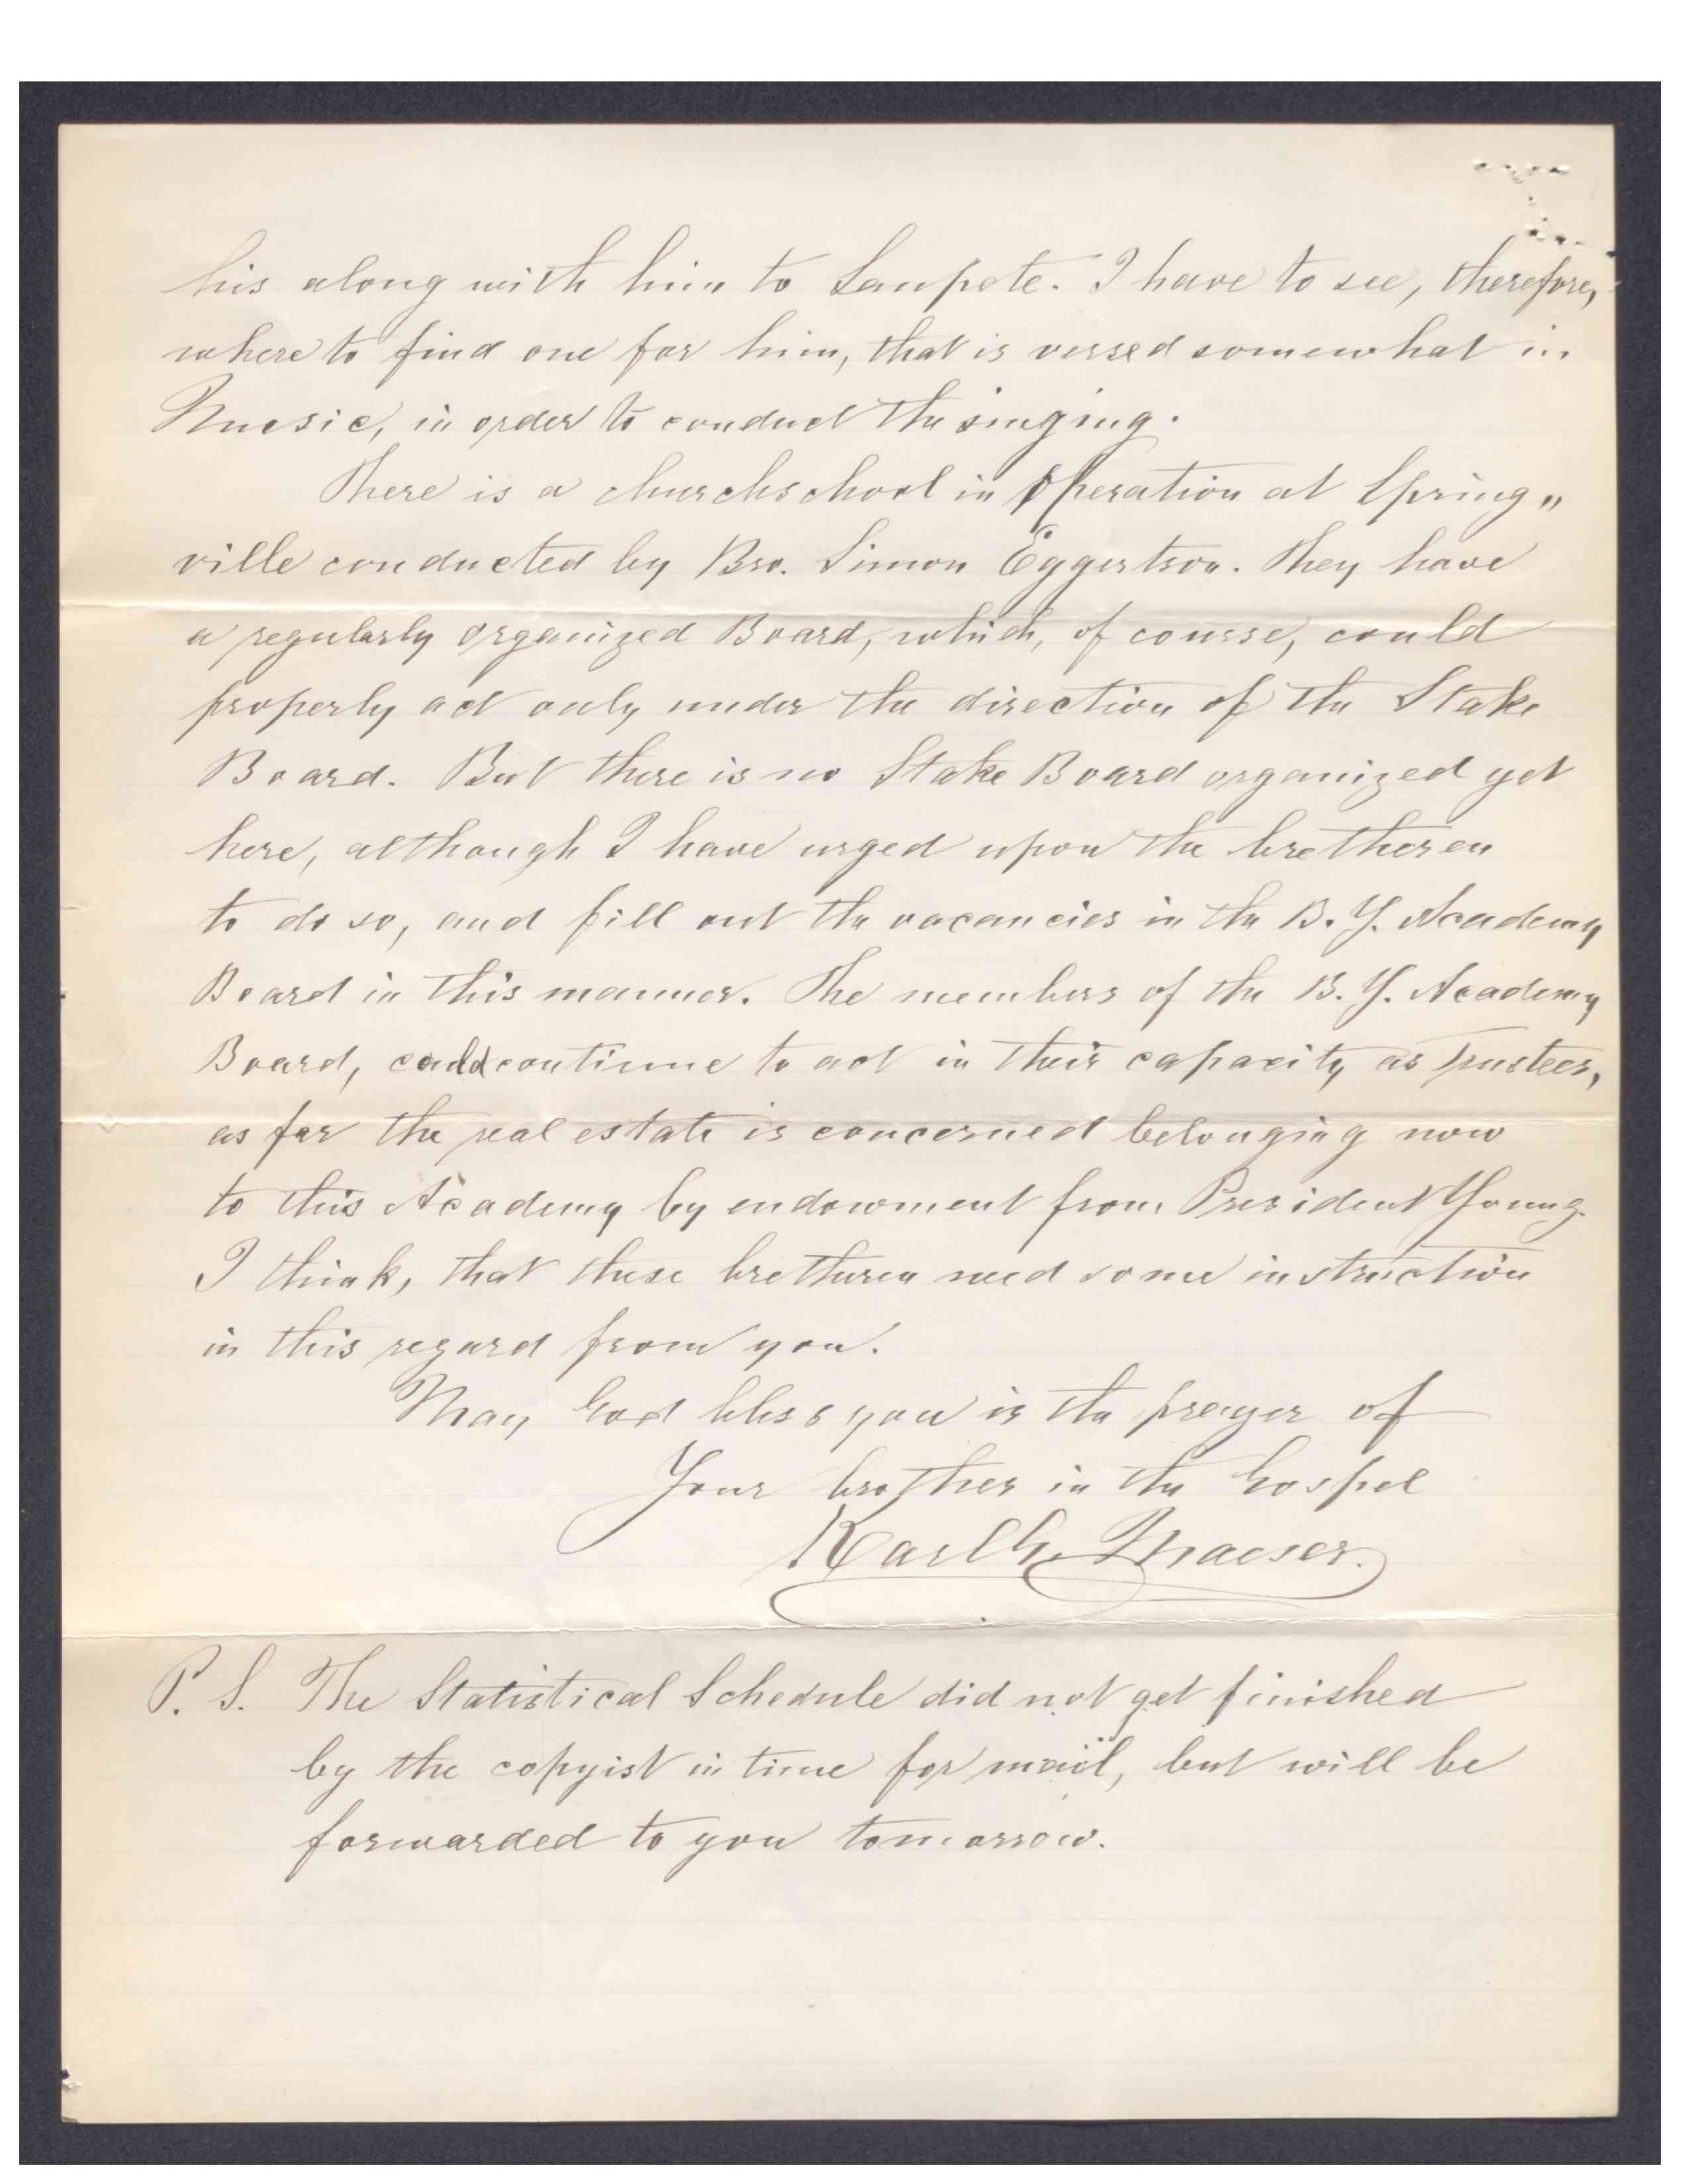 his along with him to Sanpete. I have to see, therefore,
where to find one for him, that is versed somewhat in
Music, in order to conduct the singing.
There is a churchschool in operation at Spring„
ville conducted by Bro. Simon Eggertson. They have
a regularly organized Board, which, of course, could
properly act only under the direction of the Stake
Board. But there is no Stake Board organized yet
here, although I have urged upon the bretheren
to do so, and fill out the vacancies in the B. Y. Academy
Board in this manner. The members of the B. Y. Academy
Board, could continue to act in their capacity as trustees,
as far the real estate is concerned belonging now
to this Academy by endowment from President Young.
I think, that these bretheren need some instruction
in this regard from you.
May God bless you is the prayer of
Your brother in the Gospel
Karl G. Maeser.
P. S. The Statistical Schedule did not get finished
by the copyist in time for mail, but will be
forwarded to you tomorrow.